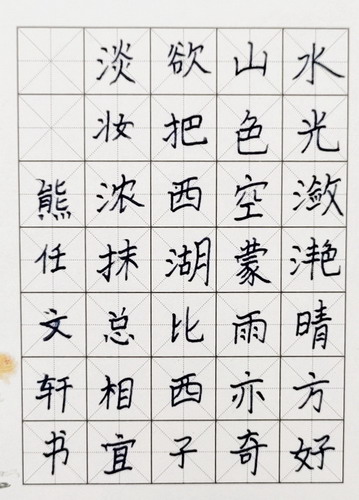 水光潋滟晴方好
山色空蒙雨亦奇
欲把西湖比西子
淡妆浓抹总相宜
熊任文轩书